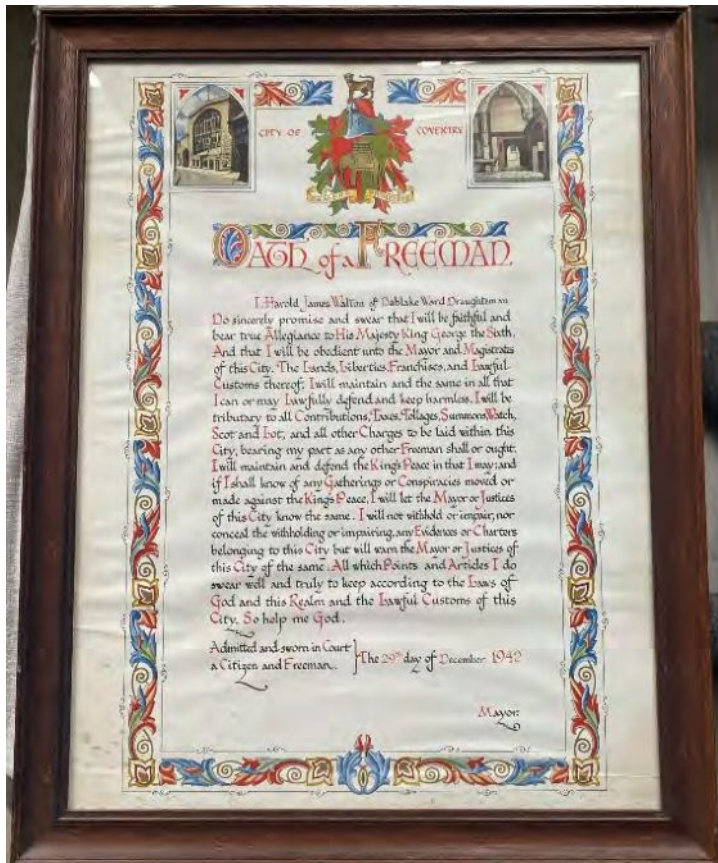 CITY OF COVENTRY
OATH of a FREEMAN
I, Harold James Walton of Bablake Ward Draughtsman
Do sincerely promise and swear that I will be faithful and
bear true Allegiance to His Majesty King George the Sixth.
And that I will be obedient unto the Mayor and Magistrates
of this City. The Lands, Liberties, Franchises, and Lawful
Customs thereof, I will maintain and the same in all that
I can or may Lawfully defend and keep harmless. I will be
tributary to all Contributions, Taxes, Tollages, Summons, Watch,
Scot and Lot, and all other Charges to be laid within this
City, bearing my part as any other Freeman shall or ought.
I will maintain and defend the King's Peace in that I may; and
if I shall know of any Gatherings or Conspiracies moved or
made against the King's Peace, I will let the Mayor or Justices
of this City know the same. I will not withhold or impair, nor
conceal the withholding or impairing, any Evidences or Charters
belonging to this City but will warn the Mayor or Justices of
this City of the same. All which Points and Articles I do
swear well and truly to keep according to the Laws of
God and this Realm and the Lawful Customs of this
City. So help me God.
Admitted and sworn in Court
a Citizen and Freeman.
The 29th day of December 1942
Mayor